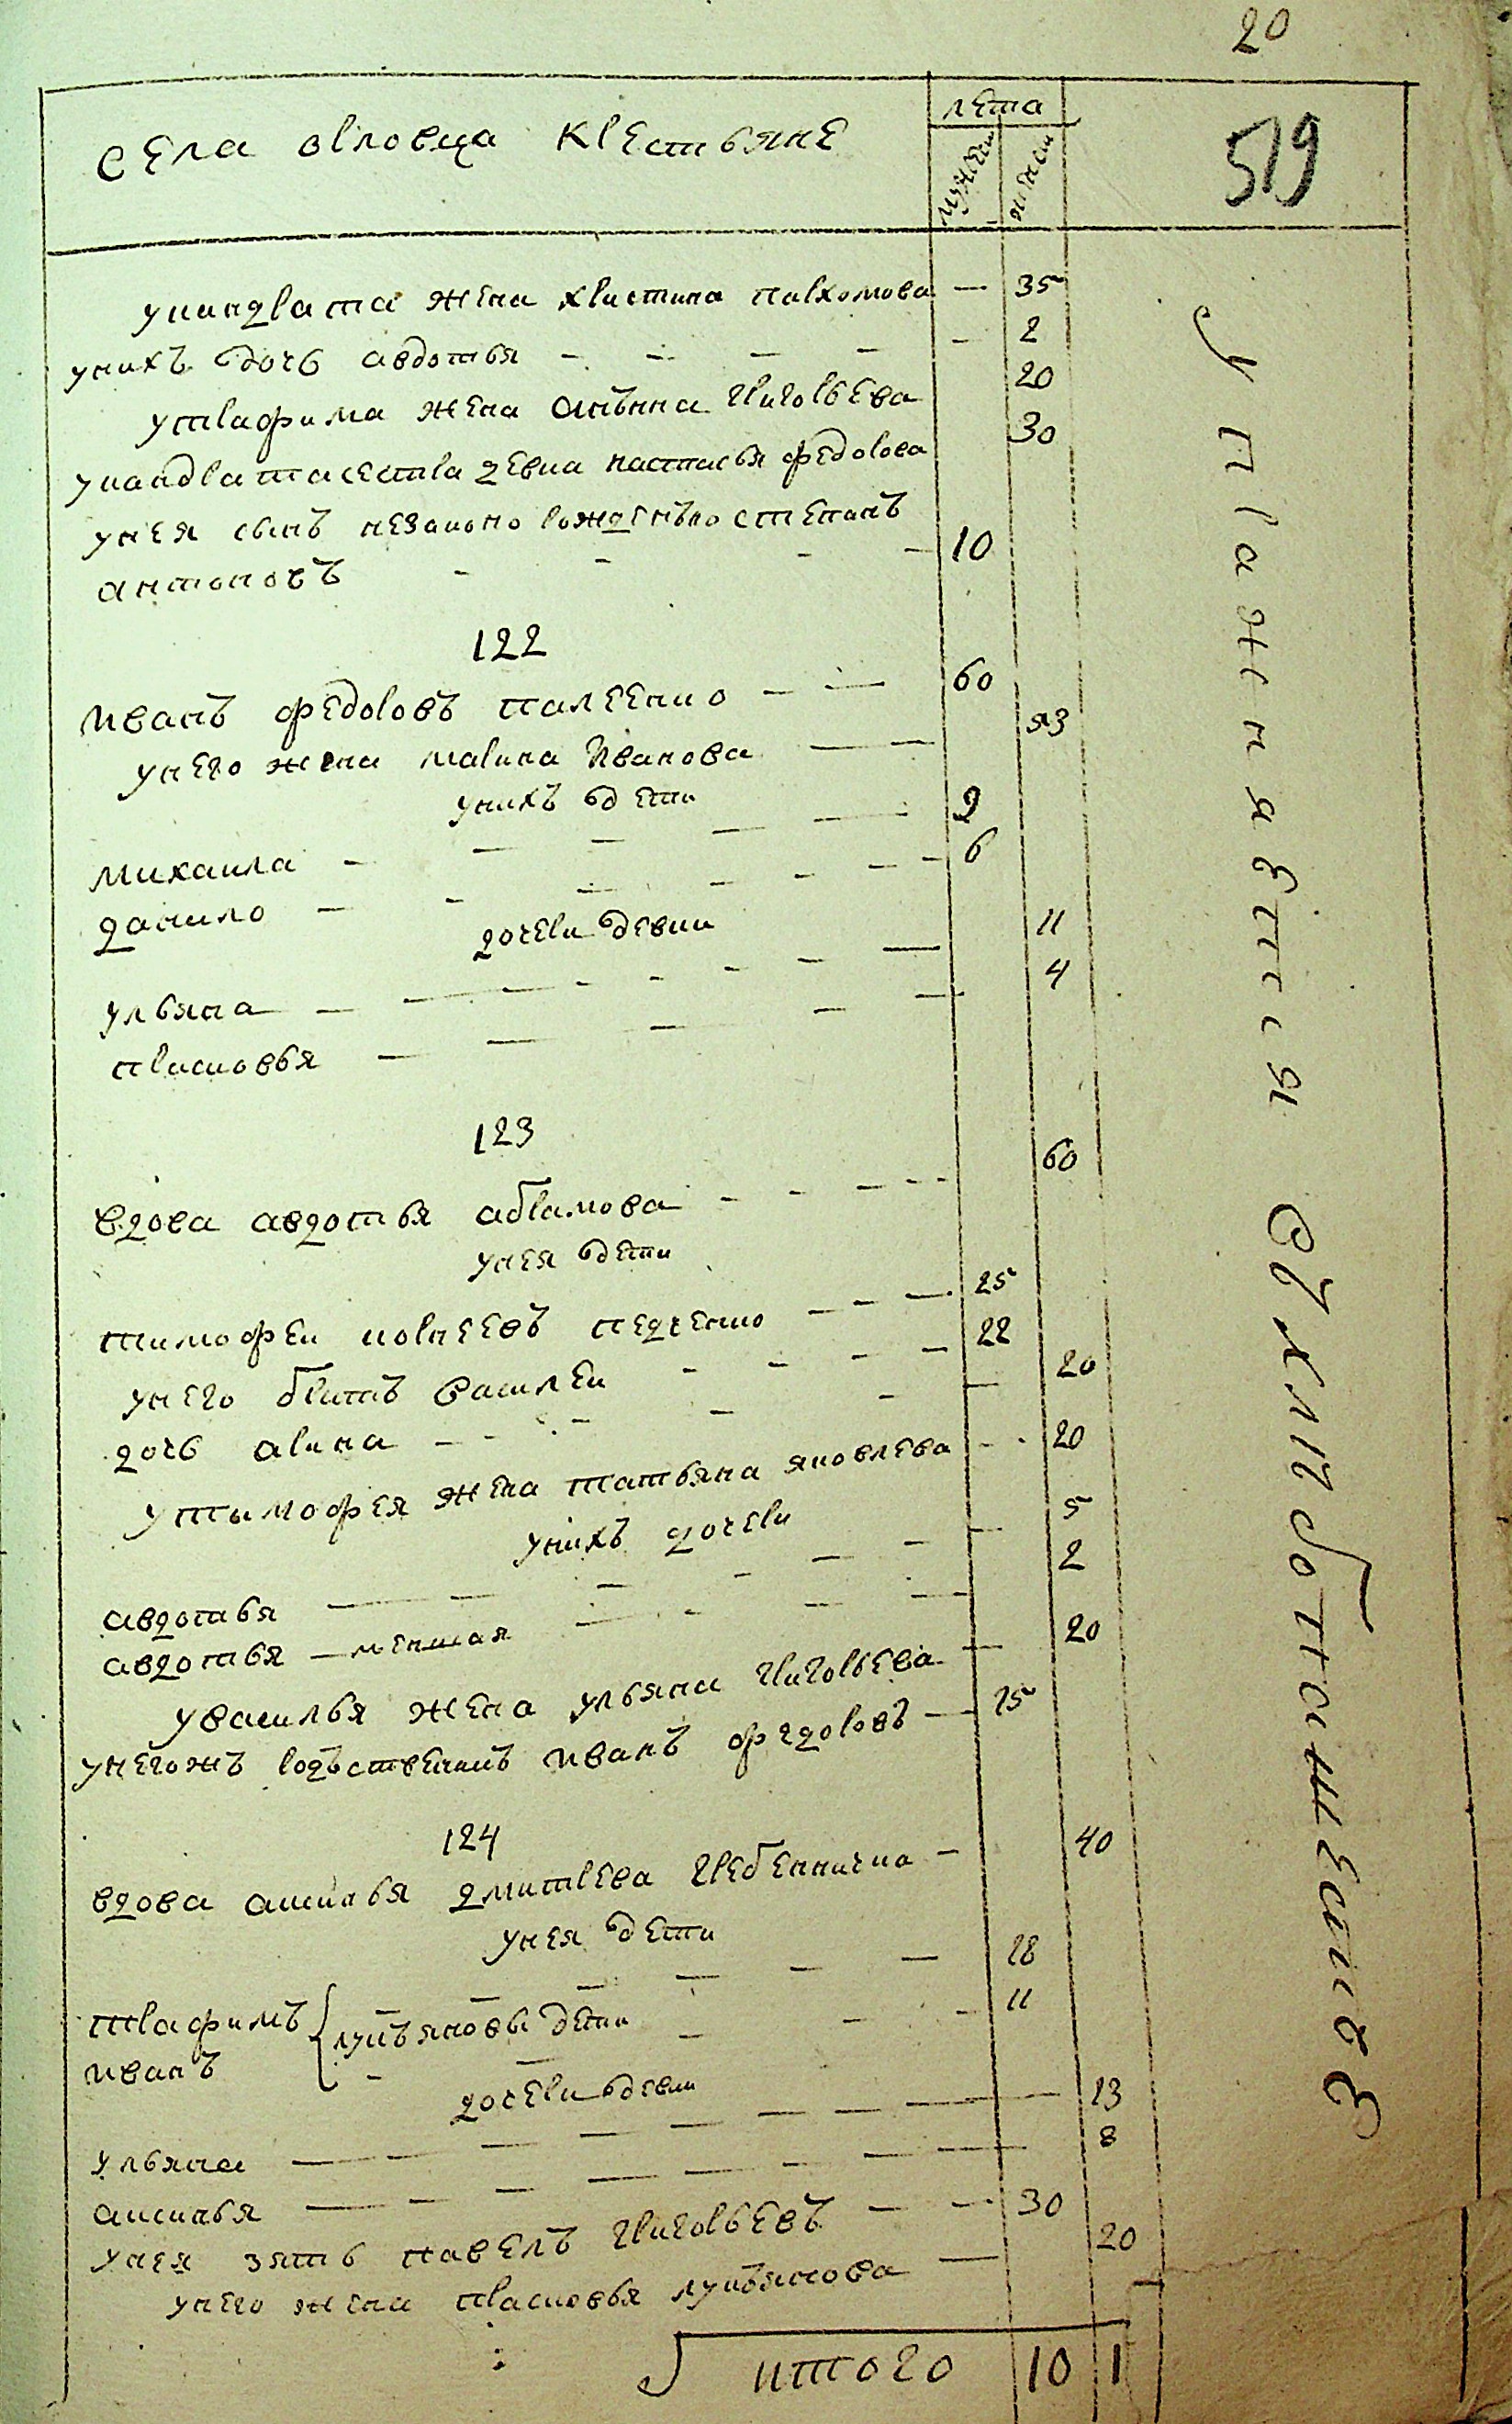 20
села орловца крестьяне
лета
мужеск
женск
519
укиндрата жена христина пархомова — 35
унихъ дочь авдотья — 2
утрафима жена анъна григорьева 20
укандратасестра девка настасья федорова 30
унея сынъ незаконо рожденъно степанъ
антоновъ — 10
122
иванъ федоровъ палеенко — 60
унего жена марина иванова — 43
унихъ дети
михаила — 9
данило — 6
дочери девки
ульяна — 11
прасковья — 4
123
вдова авдотья абрамова — 60
унея дети
тимофеи корнеевъ педченко — 25
унего братъ василеи — 22
дочь арина — 20
утымофея жена татьяна яковлева — 20
унихъ дочери
авдотья — 5
авдотья — меншая — 2
увасилья жена ульяна григорьева — 20
унегожъ родъственикъ иванъ федоровъ — 15
124
вдова аксинья дмитрева гребенничка — 40
унея дети
трафимъ { лукъяновы дети — 18
иванъ — 11
дочери девки
ульяна — 13
аксинья — 8
унея зять павелъ григорьевъ — 30
унего жена прасковья лукъянова — 20
итого 10 1